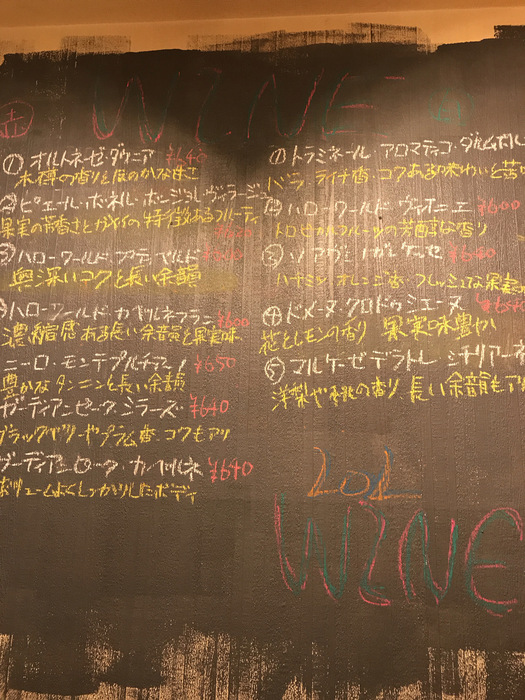 WINE
① オルトネーゼ・ダウニア ¥640
木樽の香りとほのかな甘エ
ピエール・ポネル・ボージョレ・ヴィラージュ
果実の芳香とガメイの特徴あるフルーティ
ハローワールド・プティベルド
奥深いコクと長い余韻
ハローワールド・カベルネフラン ¥600
濃縮感ある長い余韻と果実味
ニーロ・モンテプルチアーノ ¥650
豊かなタンニンと長い余韻
ガーディアンピーク・シラーズ ¥640
ブラックベリーやプラム香・コクもアリ
ガーディアンピーク・カベルネ ¥640
ボリュームよくしっかりしたボディ
① トラミネール・アロマティコ・ダルムボル
バラ ライチ香・コクある味わいと
ハローワールド・ヴィオニエ ¥600
トロピカルフルーツの芳醇な香り
③ ソアヴェ
ハチミツ オレンジ香・フレッシュな果実
④ ドメーヌ・クロドゥシエーヌ ¥640
花とレモンの香り 果実味豊か
⑤ マルケーゼデラトレ シチリアーネ
洋梨や桃の香り 長い余韻もアリ
LOL
WINE